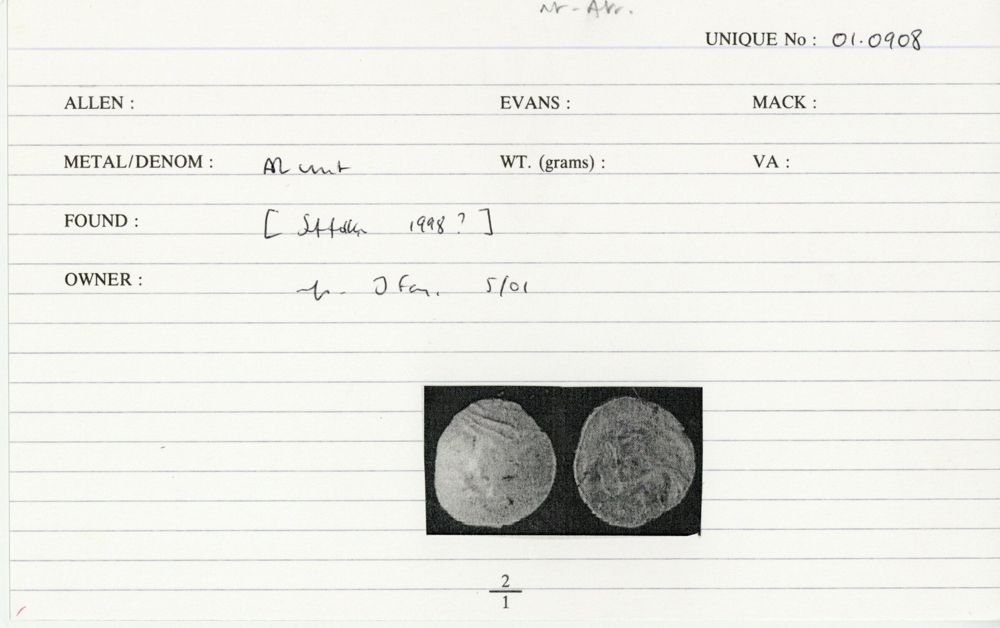 UNIQUE No : 01.0908
ALLEN : EVANS : MACK :
METAL/DENOM : AR unit WT. (grams) : VA :
FOUND : [ Suffolk 1998 ? ]
OWNER : 5/01
2
1